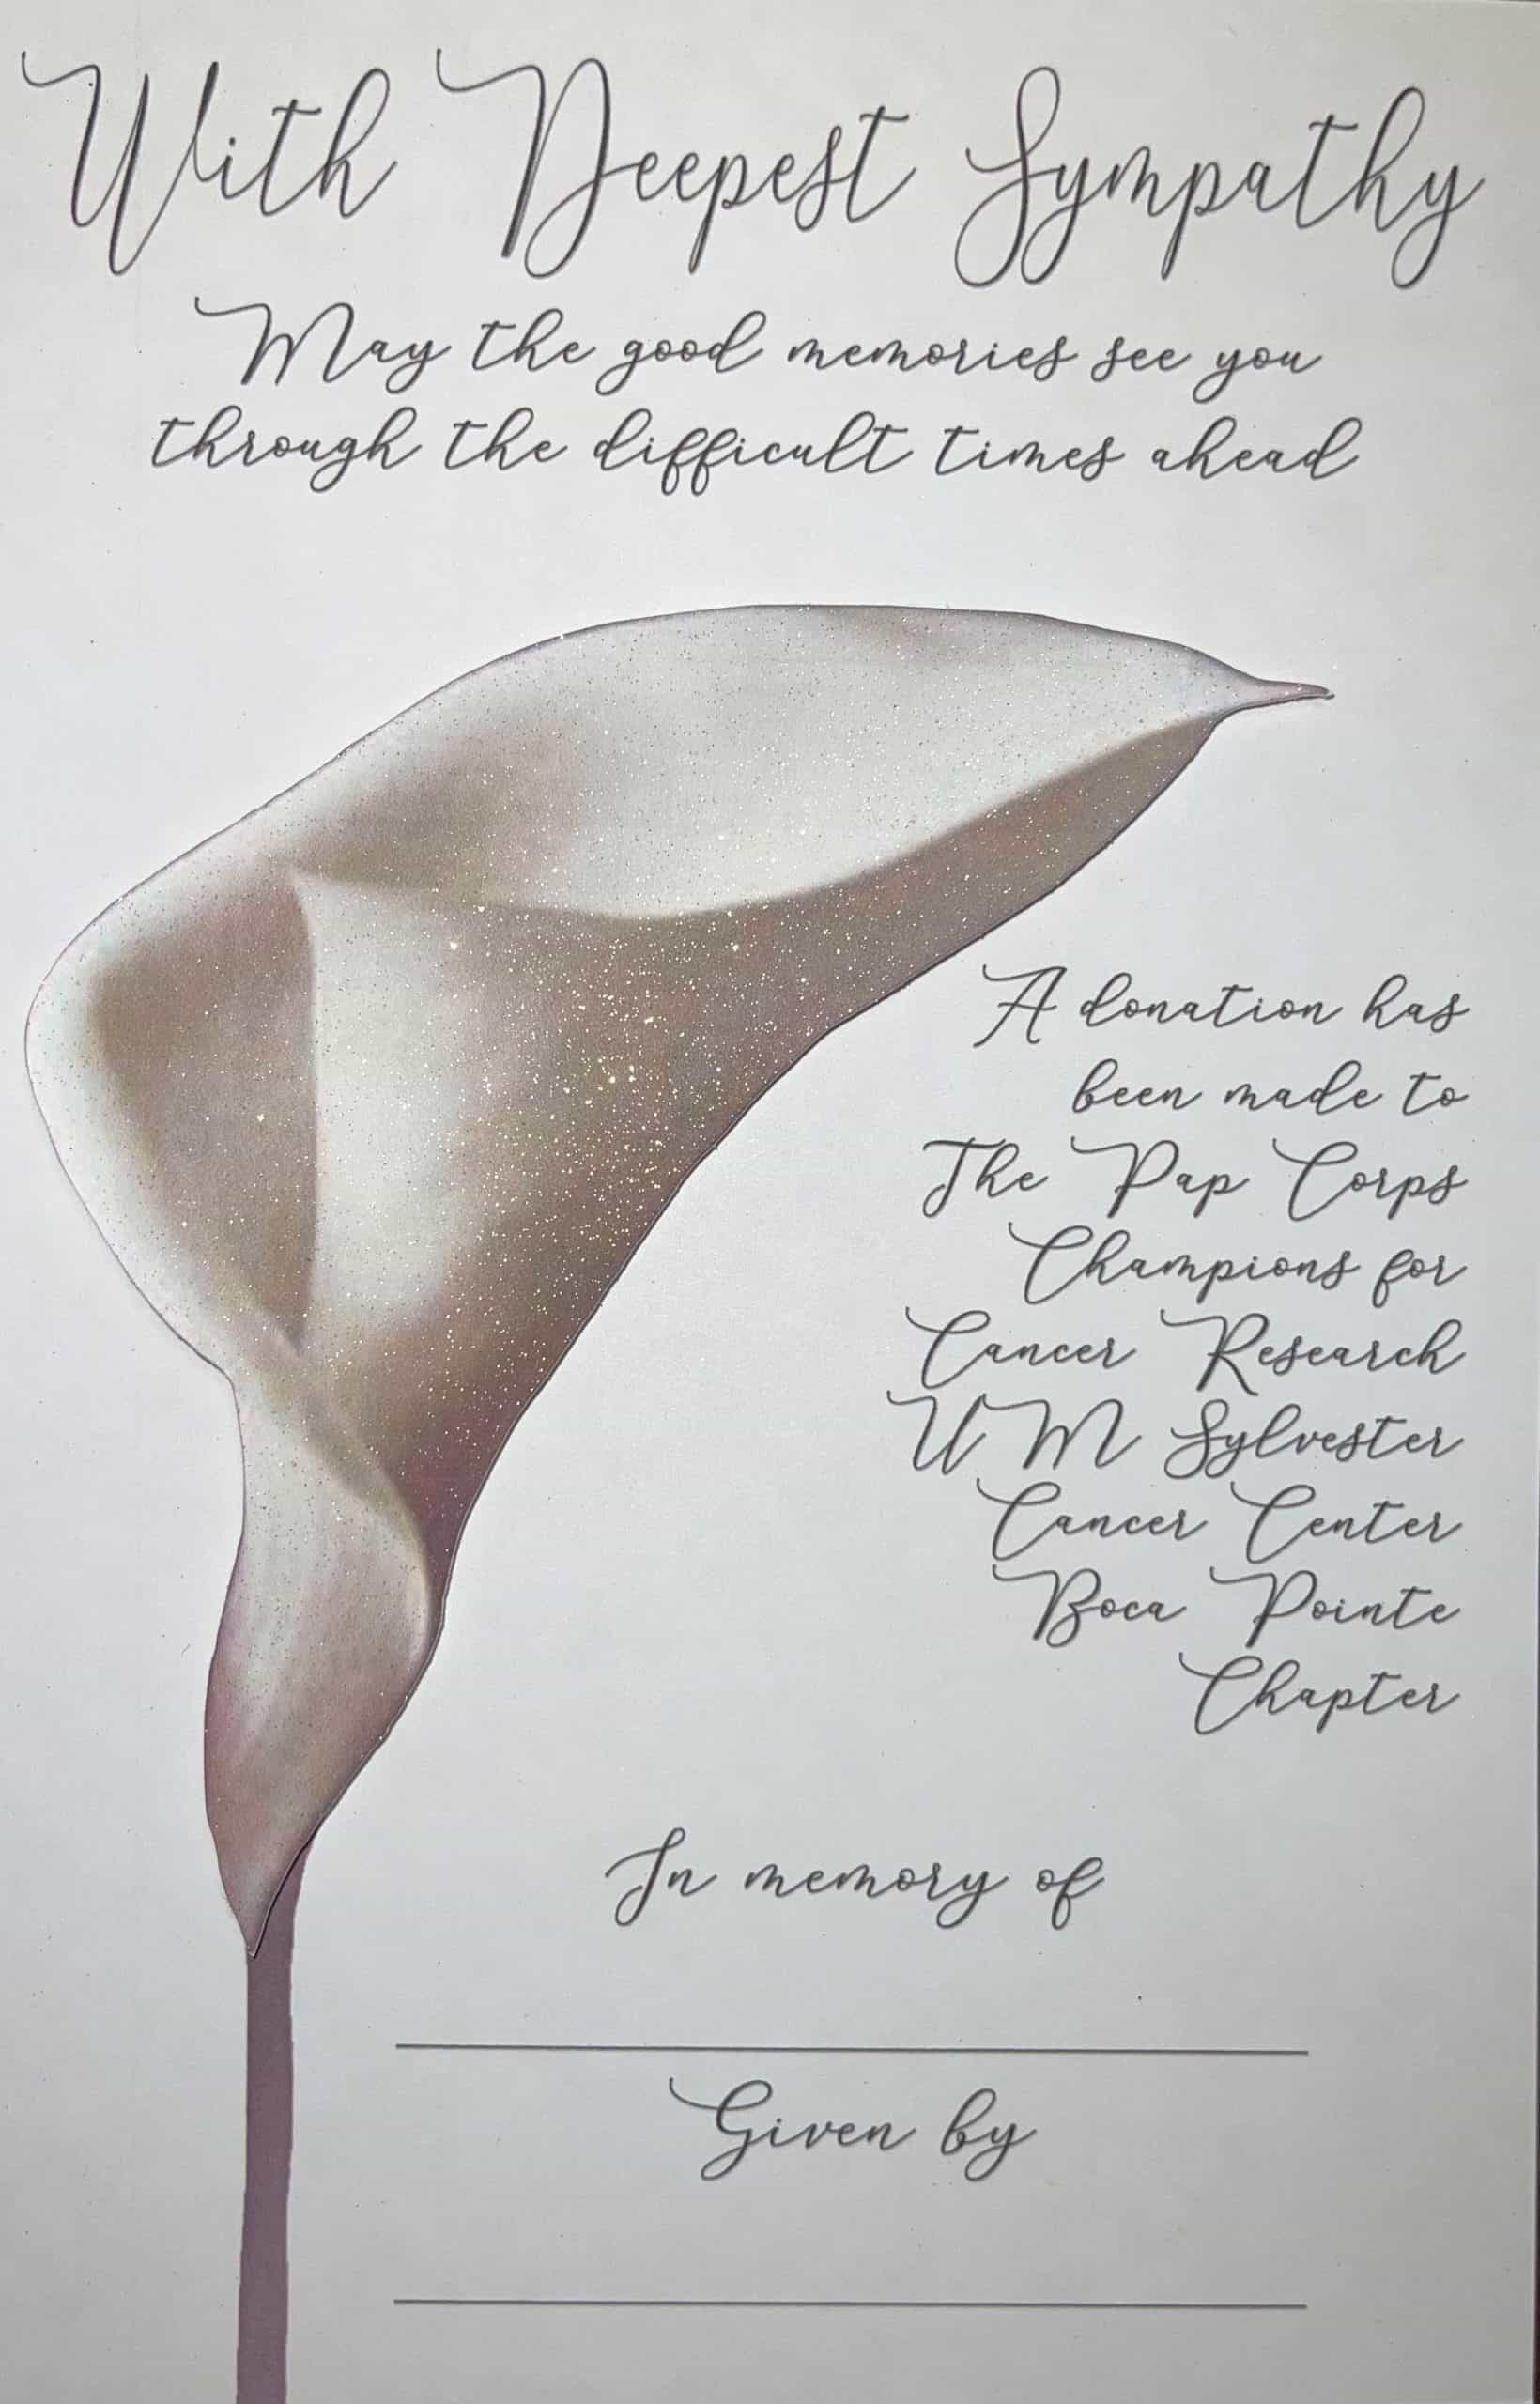 With Deepest Sympathy
May the good memories see you
through the difficult times ahead
A donation has
been made to
The Pap Corps
Champions for
Cancer Research
UM Sylvester
Cancer Center
Boca Pointe
Chapter
In memory of
Given by